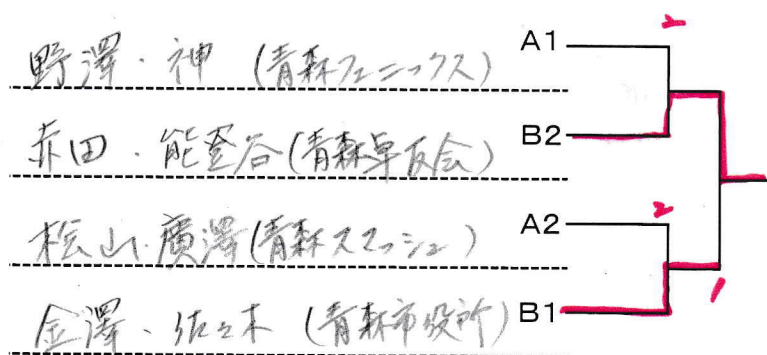 野澤・神 (青森フェニックス) A1 2
赤田・能登谷(青森卓友会) B2
桧山・廣澤(青森スマッシュ) A2 2
金澤・佐々木 (青森市役所) B1 1